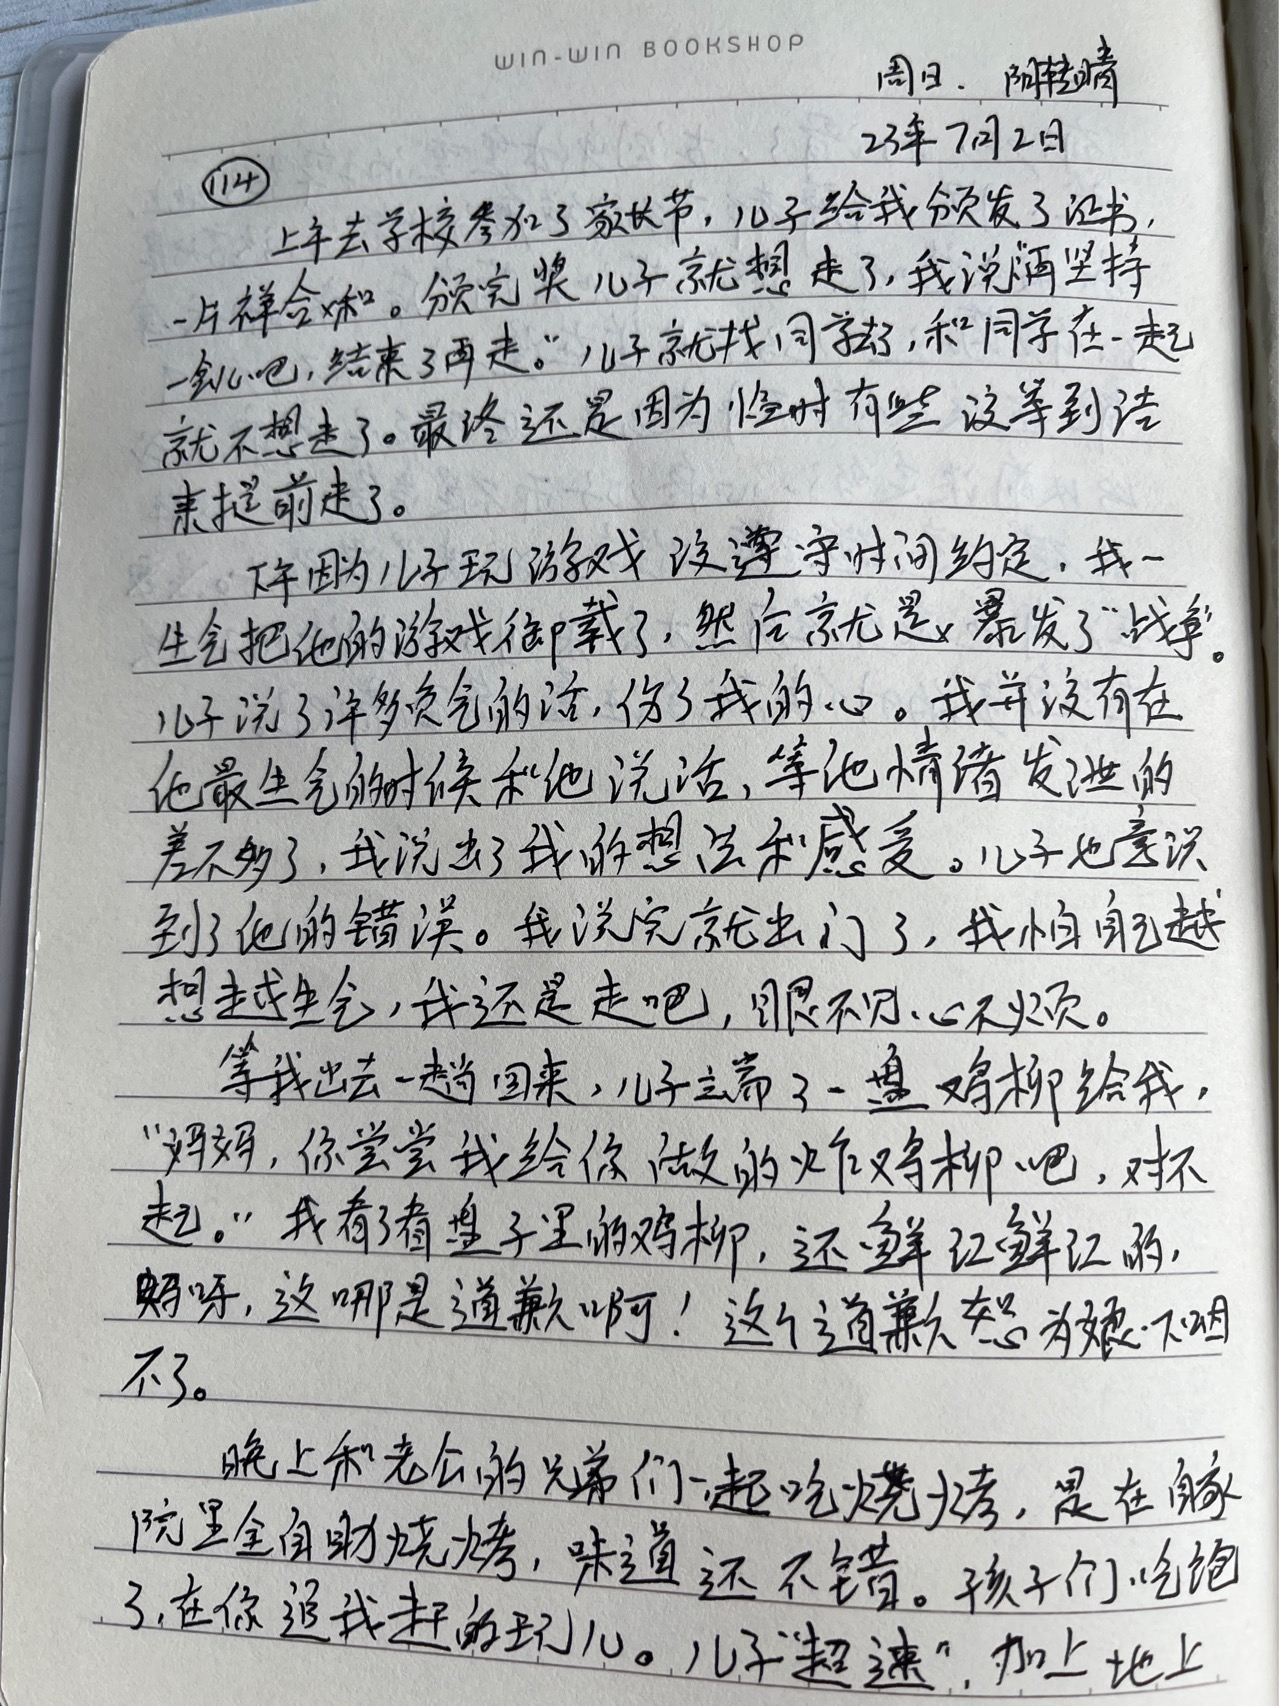 WIN-WIN BOOKSHOP
周日. 阴转晴
23年7月2日
114
上午去学校参加了家长节,儿子给我颁发了证书,
一片祥合啊和。颁完奖儿子就想走了,我说"再坚持
一会儿吧,结束了再走。"儿子就找同学去了,和同学在一起
就不想走了。最终还是因为临时有些没等到结
束提前走了。
下午因为儿子玩游戏没遵守时间约定,我一
生气把他的游戏御载了,然后就是暴发了"战争"。
儿子说了许多负气的话,伤了我的心。我并没有在
他最生气的时候和他说话,等他情绪发泄的
差不多了,我说出了我的想法和感受。儿子也意识
到了他的错误。我说完就出门了,我怕自己越
想越生气,我还是走吧,眼不见心不烦。
等我出去一趟回来,儿子立端了一盘鸡柳给我,
"妈妈,你尝尝我给你做的炸鸡柳吧,对不
起。"我看了看盘子里的鸡柳,还鲜红鲜红的,
妈呀,这哪是道歉啊!这个道歉恕为娘下咽
不了。
晚上和老公的兄弟们一起吃烧烤,是在自家
院里全自助烧烤,味道还不错。孩子们吃饱
了,在你追我赶的玩儿。儿子"超速",加上地上